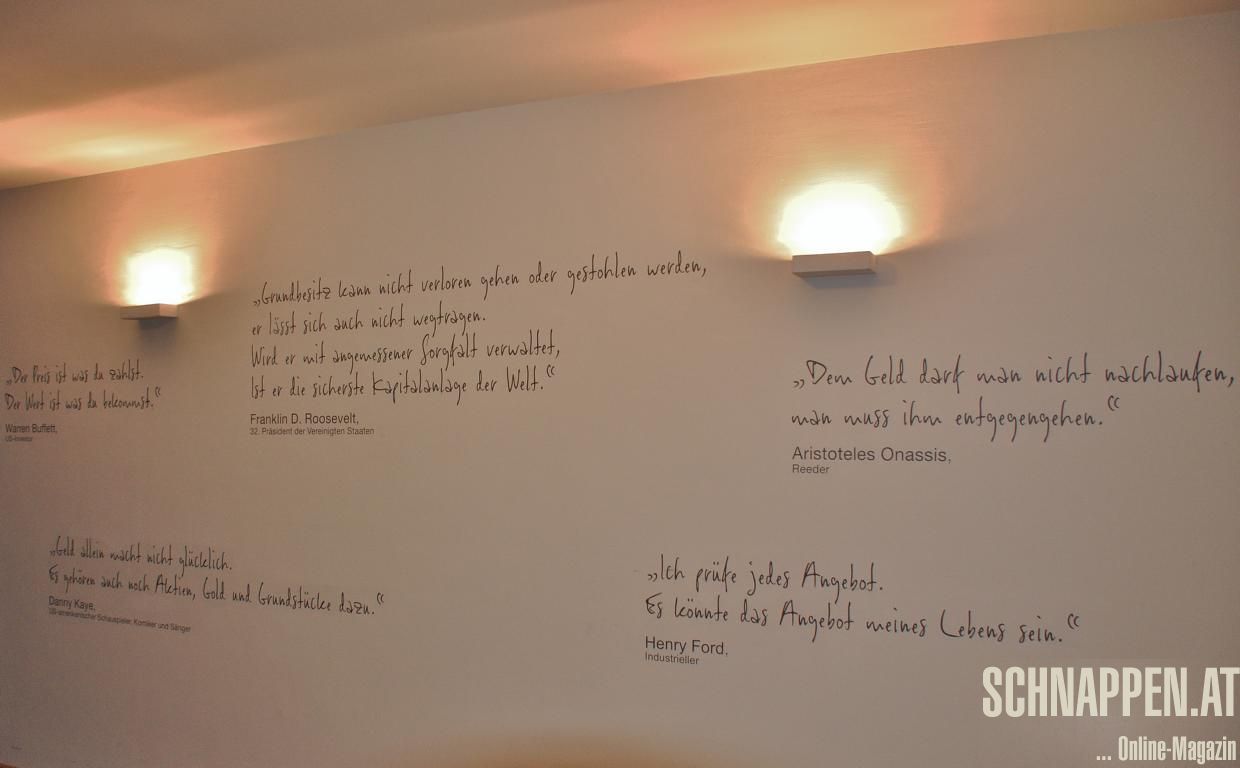 „Der Preis ist was du zahlst.
Der Wert ist was du bekommst.“
Warren Buffett,
US-Investor
„Grundbesitz kann nicht verloren gehen oder gestohlen werden,
er lässt sich auch nicht wegtragen.
Wird er mit angemessener Sorgfalt verwaltet,
Ist er die sicherste Kapitalanlage der Welt.“
Franklin D. Roosevelt,
32. Präsident der Vereinigten Staaten
„Dem Geld darf man nicht nachlaufen,
man muss ihm entgegengehen.“
Aristoteles Onassis,
Reeder
„Geld allein macht nicht glücklich.
Es gehören auch noch Aktien, Gold und Grundstücke dazu.“
Danny Kaye,
US-amerikanischer Schauspieler, Komiker und Sänger
„Ich prüfe jedes Angebot.
Es könnte das Angebot meines Lebens sein.“
Henry Ford,
Industrieller
SCHNAPPEN.AT
... Online-Magazin